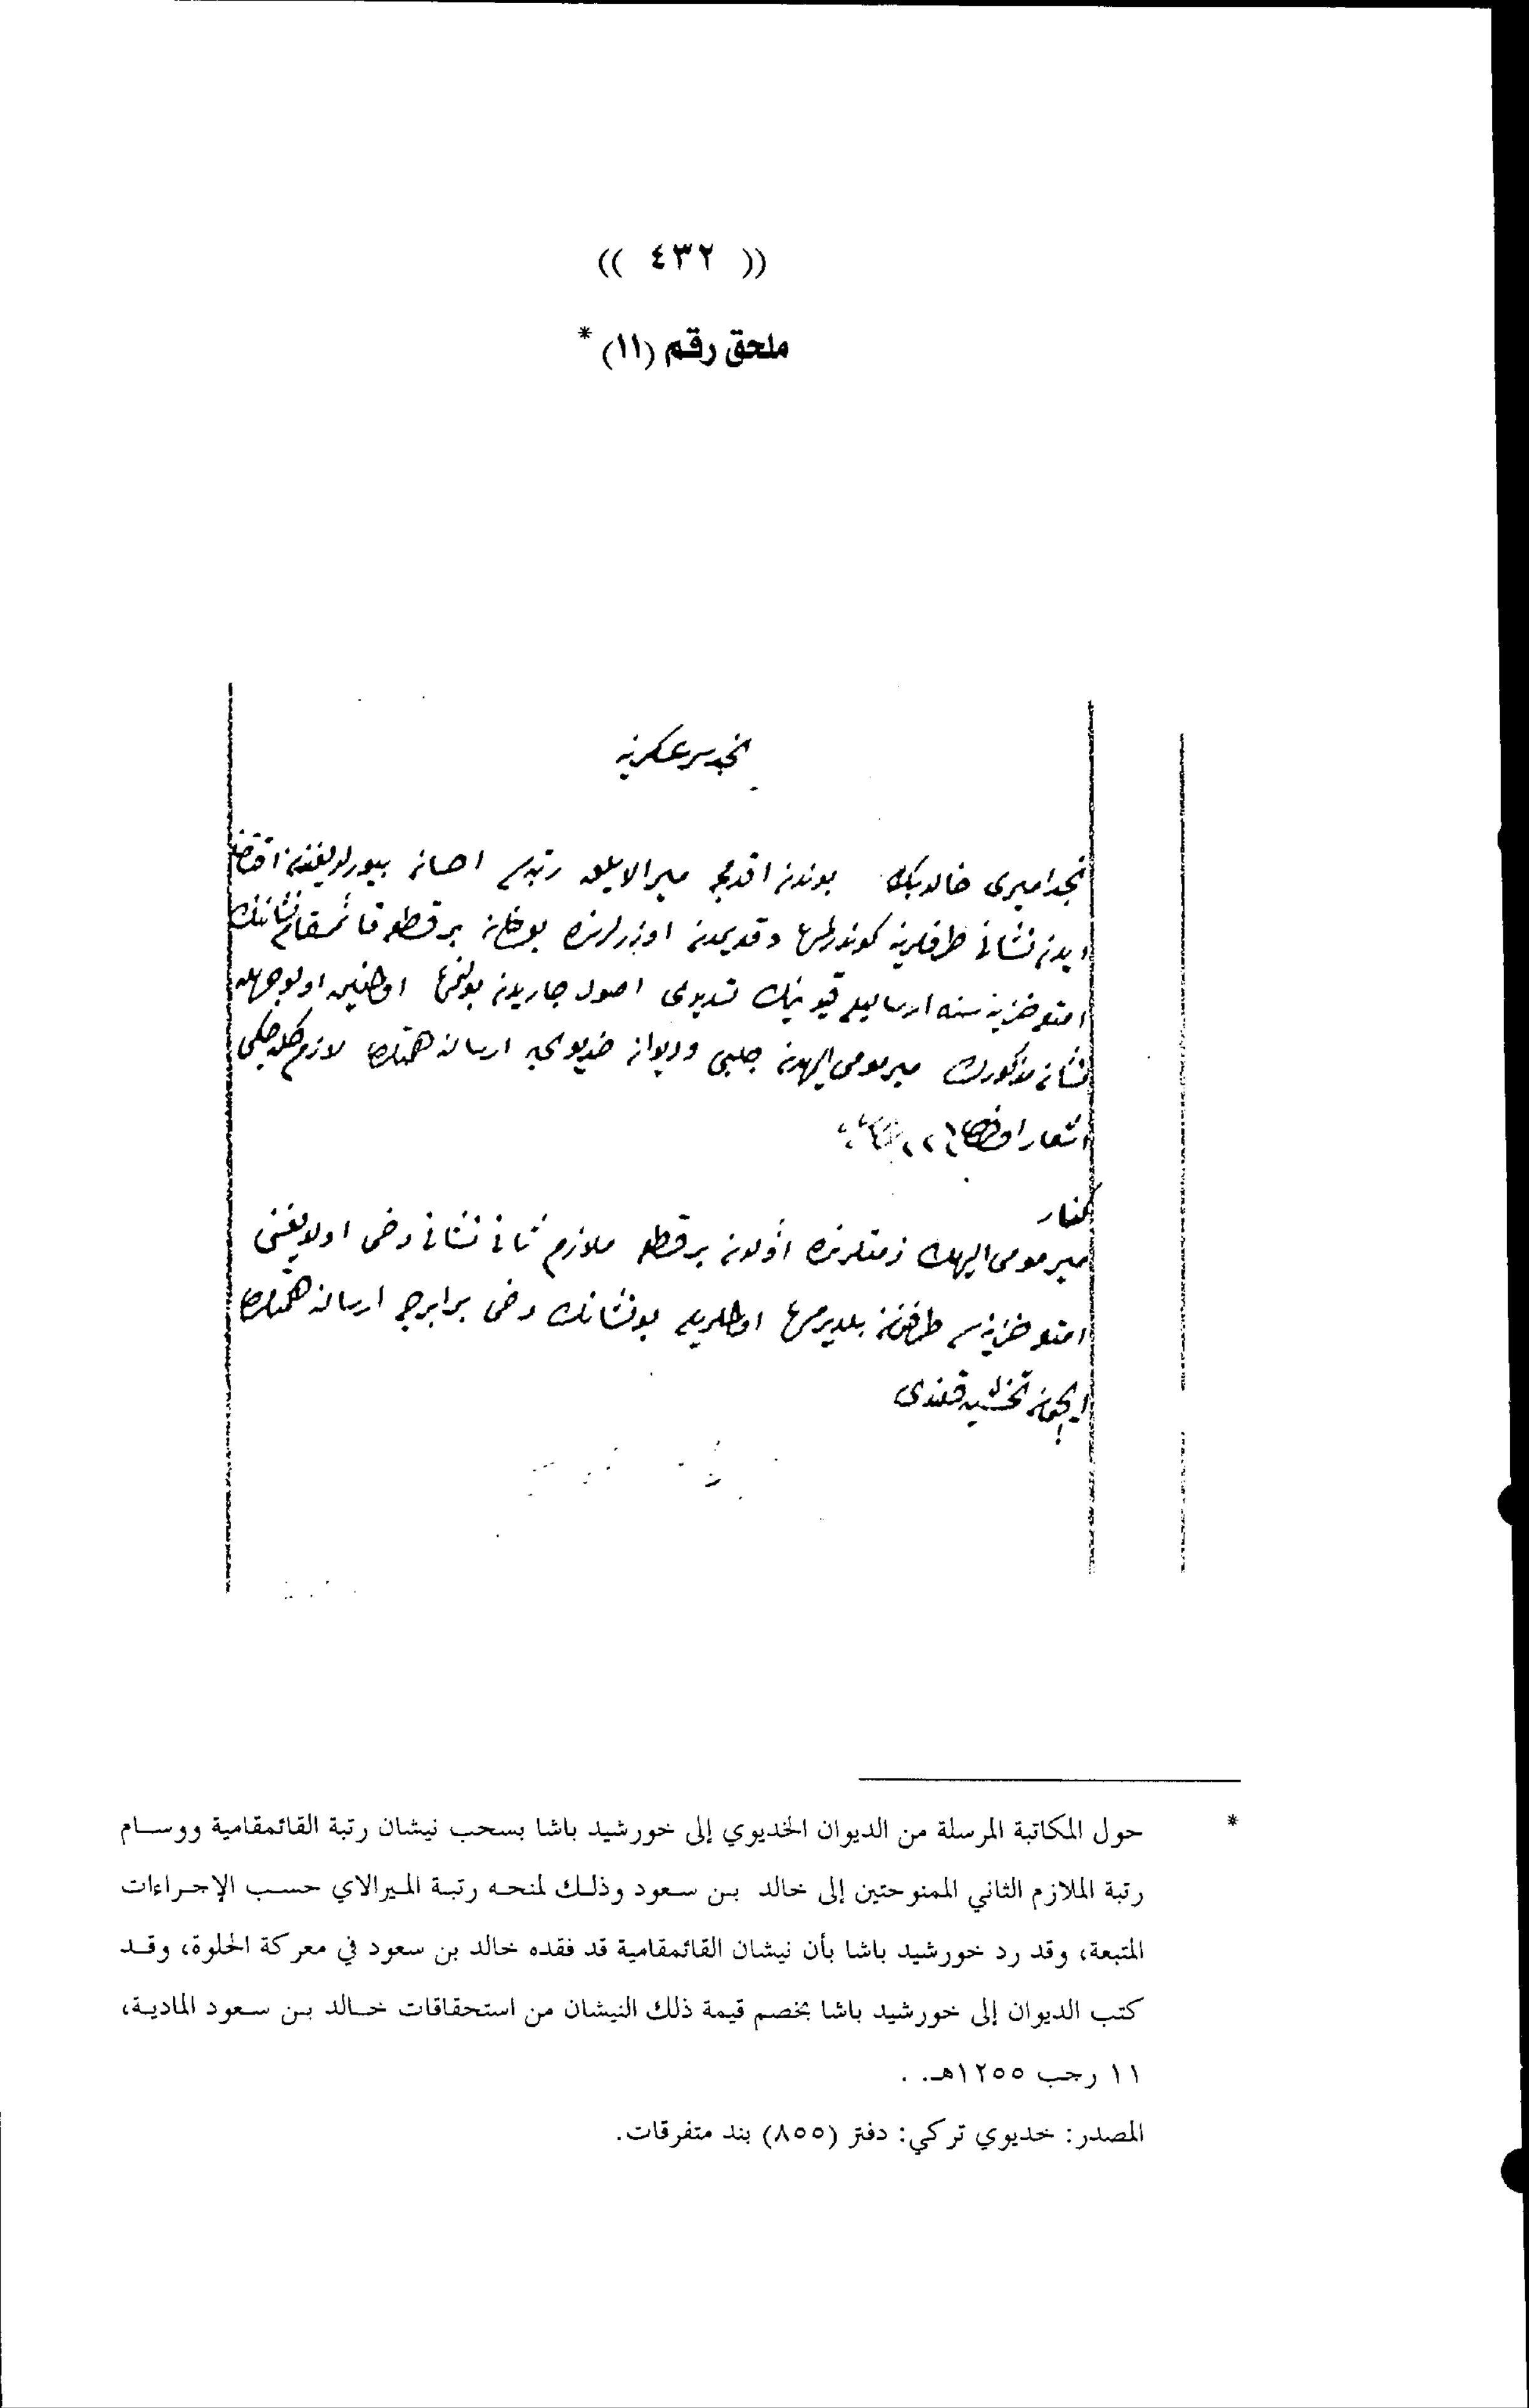 (( ٤٣٢ ))
ملحق رقم (١١) *
نجد سرعسكرينه
نجد اميرى خالد بك بوندن اقدم ميرالايلق رتبه سى احسان بيورلديغندن اقتضا
ايدن نشانى طرفلرينه كوندرلمش وقديمدن اوزرلرنده بولنان بر قطعه قائمقام نشاننك
امتعه خزينه سنه ارساليله قيدينك تسديدى اصول جاريه دن بولنمش اولمغين اولوجهله
نشان مذكورك مير مومى اليهدن جلبى وديوان خديوى يه ارسالنه همتلرى لازم كله جكى
اشعار
كنار
مير مومى اليهك ذمتلرنده اولان بر قطعه ملازم ثانى نشانى دخى اولديغنى
امتعه خزينه سى طرفندن بلديرمش اولملريله بو نشانك دخى برابرجه ارسالنه همتلرى
ايچون تحشيه قلندى
* حول المكاتبة المرسلة من الديوان الخديوي إلى خورشيد باشا بسحب نيشان رتبة القائمقامية ووسام
رتبة الملازم الثاني الممنوحتين إلى خالد بن سعود وذلك لمنحه رتبة الميرالاي حسب الإجراءات
المتبعة، وقد رد خورشيد باشا بأن نيشان القائمقامية قد فقده خالد بن سعود في معركة الحلوة، وقد
كتب الديوان إلى خورشيد باشا بخصم قيمة ذلك النيشان من استحقاقات خالد بن سعود المادية،
١١ رجب ١٢٥٥هـ. .
المصدر: خديوي تركي: دفتر (٨٥٥) بند متفرقات.